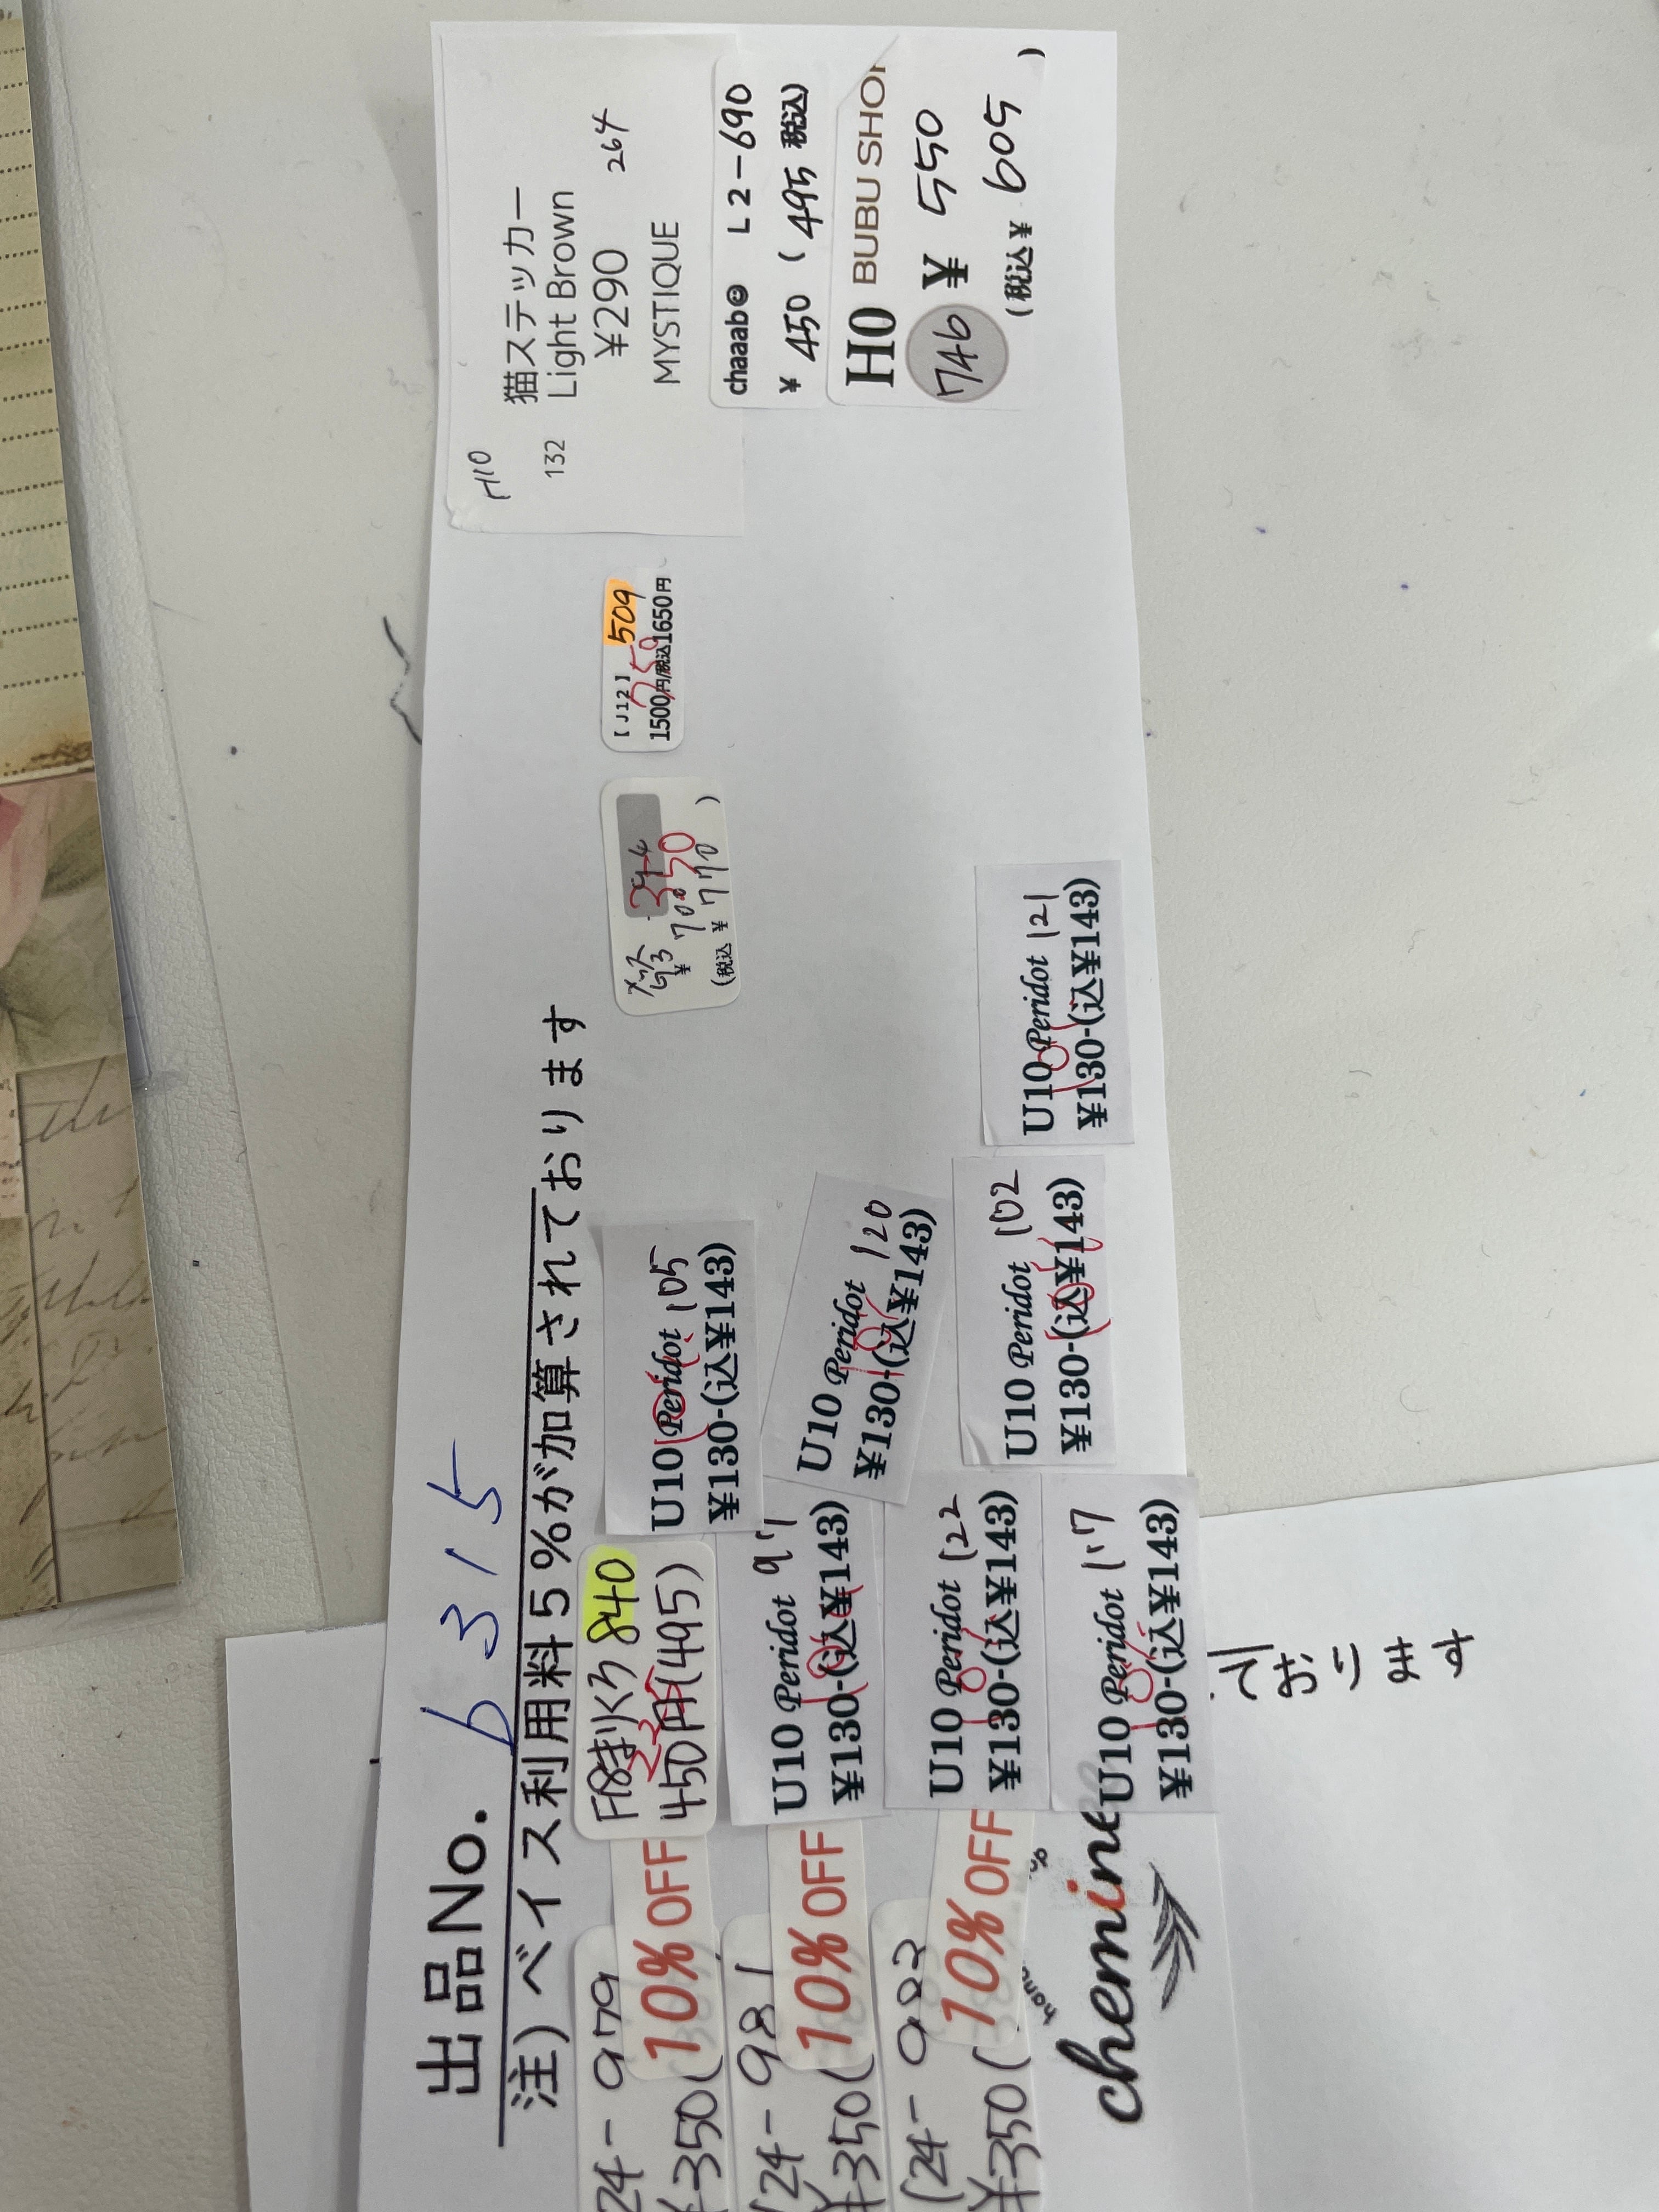 出品No. 6315
注)ベイス利用料5%が加算されております
24- 979
¥350(
10%OFF
(24- 981
¥350(
10%OFF
(24- 982
¥350(
10%OFF
chemine
840
450円(495)
U10 Peridot 105
¥130-(込¥143)
U10 Peridot 97
¥130-(込¥143)
U10 Peridot 120
¥130-(込¥143)
U10 Peridot 122
¥130-(込¥143)
U10 Peridot 102
¥130-(込¥143)
U10 Peridot 117
¥130-(込¥143)
U10 Peridot 121
¥130-(込¥143)
350
(税込 ¥ 770 )
【J12】 509
750
1500円/税込1650円
H10
132
猫ステッカー
Light Brown
¥290 264
MYSTIQUE
chaaabo L2-690
¥ 450 ( 495 税込)
H0 BUBU SHO
746 ¥ 550
(税込¥ 605 )
ております